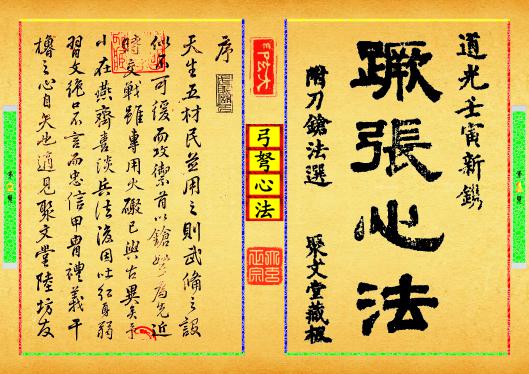 道光壬寅新鐫
蹶張心法
附刀鎗法選
聚文堂藏板
弓弩心法
序
天生五材民並用之則武備之設
似不可緩而攻禦首以鎗弩為先近
時交戰雖專用火礮已與古異矣予
小在燕齊喜談兵法後因吐紅身弱
習文絕口不言而忠信甲冑禮義干
櫓之心自矢也適見聚文堂陸坊友